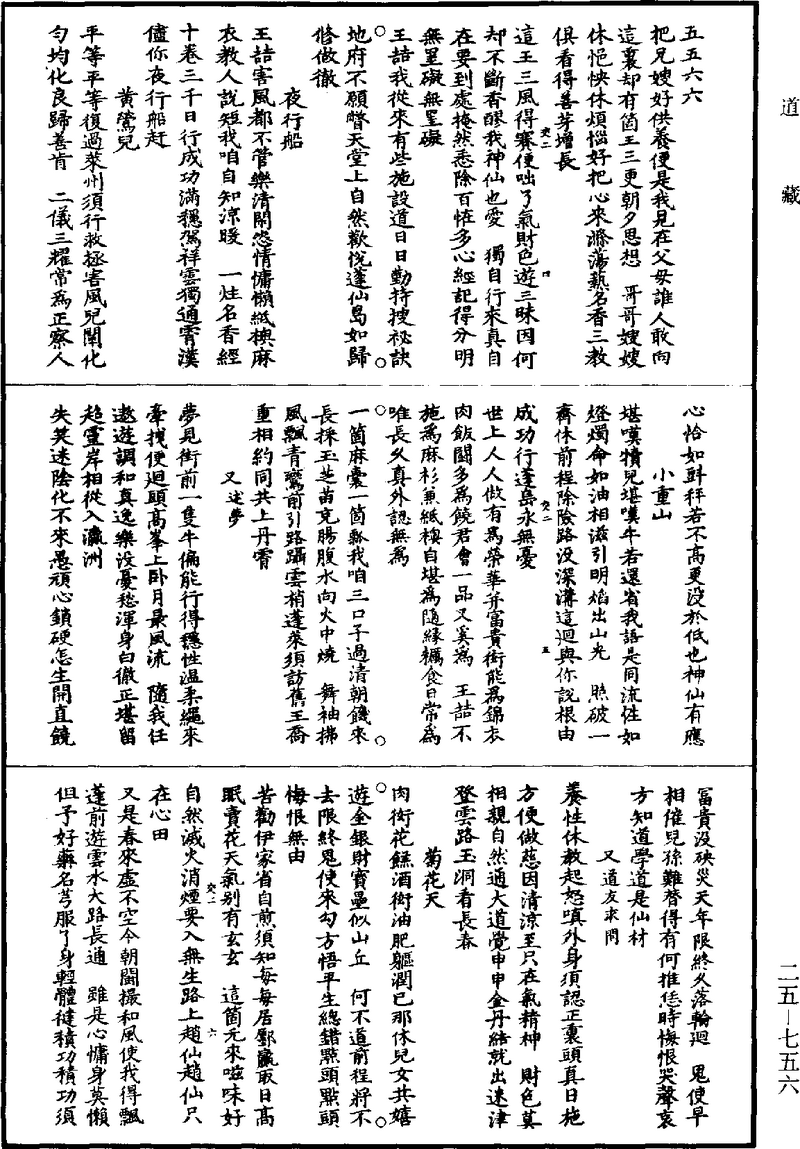 道藏
五五六六
把兄嫂好供養便是我見在父母誰人敢向
這裏却有箇王三更朝夕思想　哥哥嫂嫂
休悒怏休煩惱好把心來滌蕩爇名香三教
俱看得善芽增長
這王三風得賽便咄了氣財色遊三昧因何
却不斷香醪我神仙也愛　獨自行來真自
在要到處掩然悉除百怪多心經記得分明
無罣礙無罣礙
王喆我從來有些施設道日日勤持搜祕訣
地府不願瞥天堂上自然歡悅蓬仙島如歸
修做徹
夜行船
王喆害風都不管樂清閑恣情慵懶紙襖麻
衣教人說短我咱自知涼暖　一炷名香經
十卷三千日行成功滿穩駕祥雲獨通霄漢
儘你夜行船趕
黃鶯兒
平等平等復過萊州須行救拯害風兒闡化
勻均化良歸善肯　二儀三耀常為正察人
心恰如㪷秤若不高更沒於低也神仙有應
小重山
堪嘆犢兒堪嘆牛若還省我語是同流性如
燈燭命如油相滋引明焰出山光　照破一
齊休前程除險路没深溝這迴與你說根由
成功行蓬島永無憂
世上人人做有為榮華并富貴銜能為錦衣
肉飯鬬多為饒君會一品又奚為　王喆不
施為麻衫兼紙襖自堪為隨緣糲食日常為
唯長久真外認無為
一箇麻囊一箇瓢我咱三口子過清朝饑來
長採玉芝苗充腸腹水向火中燒　舞袖拂
風飄青鸞前引路躡雲梢蓬萊須訪舊王喬
重相約同共上丹霄
又述夢
夢見街前一隻牛偏能行得穩性温柔繩來
牽拽便迴頭高峯上卧月最風流　隨我任
遨遊調和真逸樂没憂愁渾身白徹正堪留
超靈岸相從入瀛洲
失笑迷陰化不來愚頑心鎖硬怎生開直饒
富貴没殃災天年限終久落輪迴　鬼使早
相催兒孫難替得有何推恁時悔恨哭聲哀
方知道學道是仙材
又道友求問
養性休教起怒嗔外身須認正裏頭真日施
方便做慈因清涼至只在氣精神　財色莫
相親自然通大道覺申申金丹結就出迷津
登雲路玉洞看長春
菊花天
肉銜花餻酒銜油肥軀潤已那休兒女共嬉
遊金銀財寶壘似山丘　何不道前程將不
去限終鬼使來勾方悟平生總錯點頭點頭
悔恨無由
苦勸伊家省自煎須知每每居鄽贏取日高
眠賣花天氣别有玄玄　這箇元來滋味好
自然滅火消煙要入無生路上趙仙趙仙只
在心田
又是春來虚不空今朝闘撮和風使我得飄
蓬前遊雲水大路長通　雖是心慵身莫懶
但予好藥名芎服了身輕體健積功積功須
二五－七五六